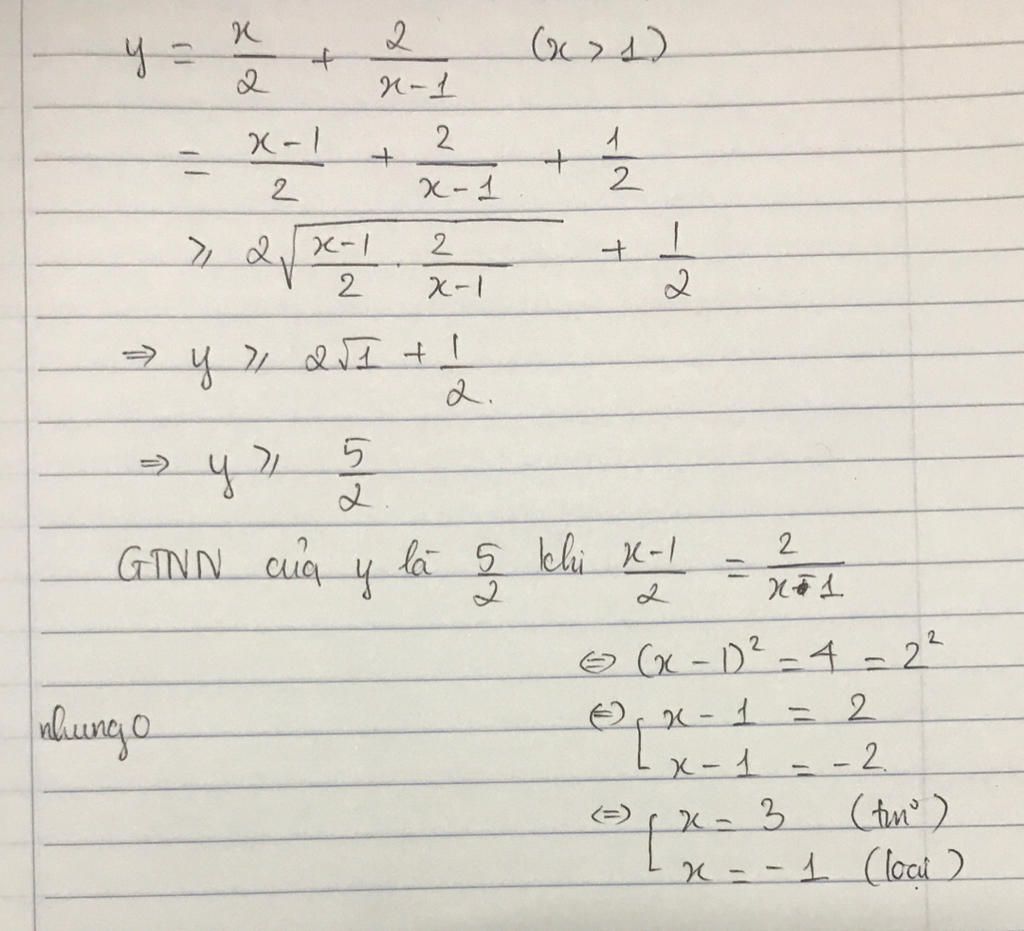 y = x/2 + 2/(x-1) (x > 1)
= (x-1)/2 + 2/(x-1) + 1/2
⩾ 2√((x-1)/2 . 2/(x-1)) + 1/2
⇒ y ⩾ 2√1 + 1/2.
⇒ y ⩾ 5/2.
GTNN của y là 5/2 khi (x-1)/2 = 2/(x-1)
⇔ (x-1)² = 4 = 2²
nhungo ⇔ [ x - 1 = 2
x - 1 = -2.
⇔ [ x = 3 (tm°)
x = -1 (loại)